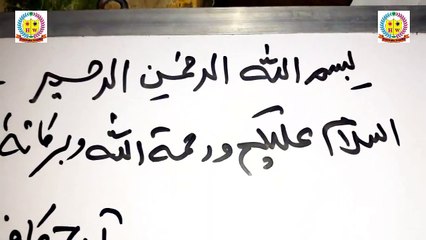 بسم الله الرحمٰن الرحیم
السلام علیکم ورحمة الله وبرکاتة
آج